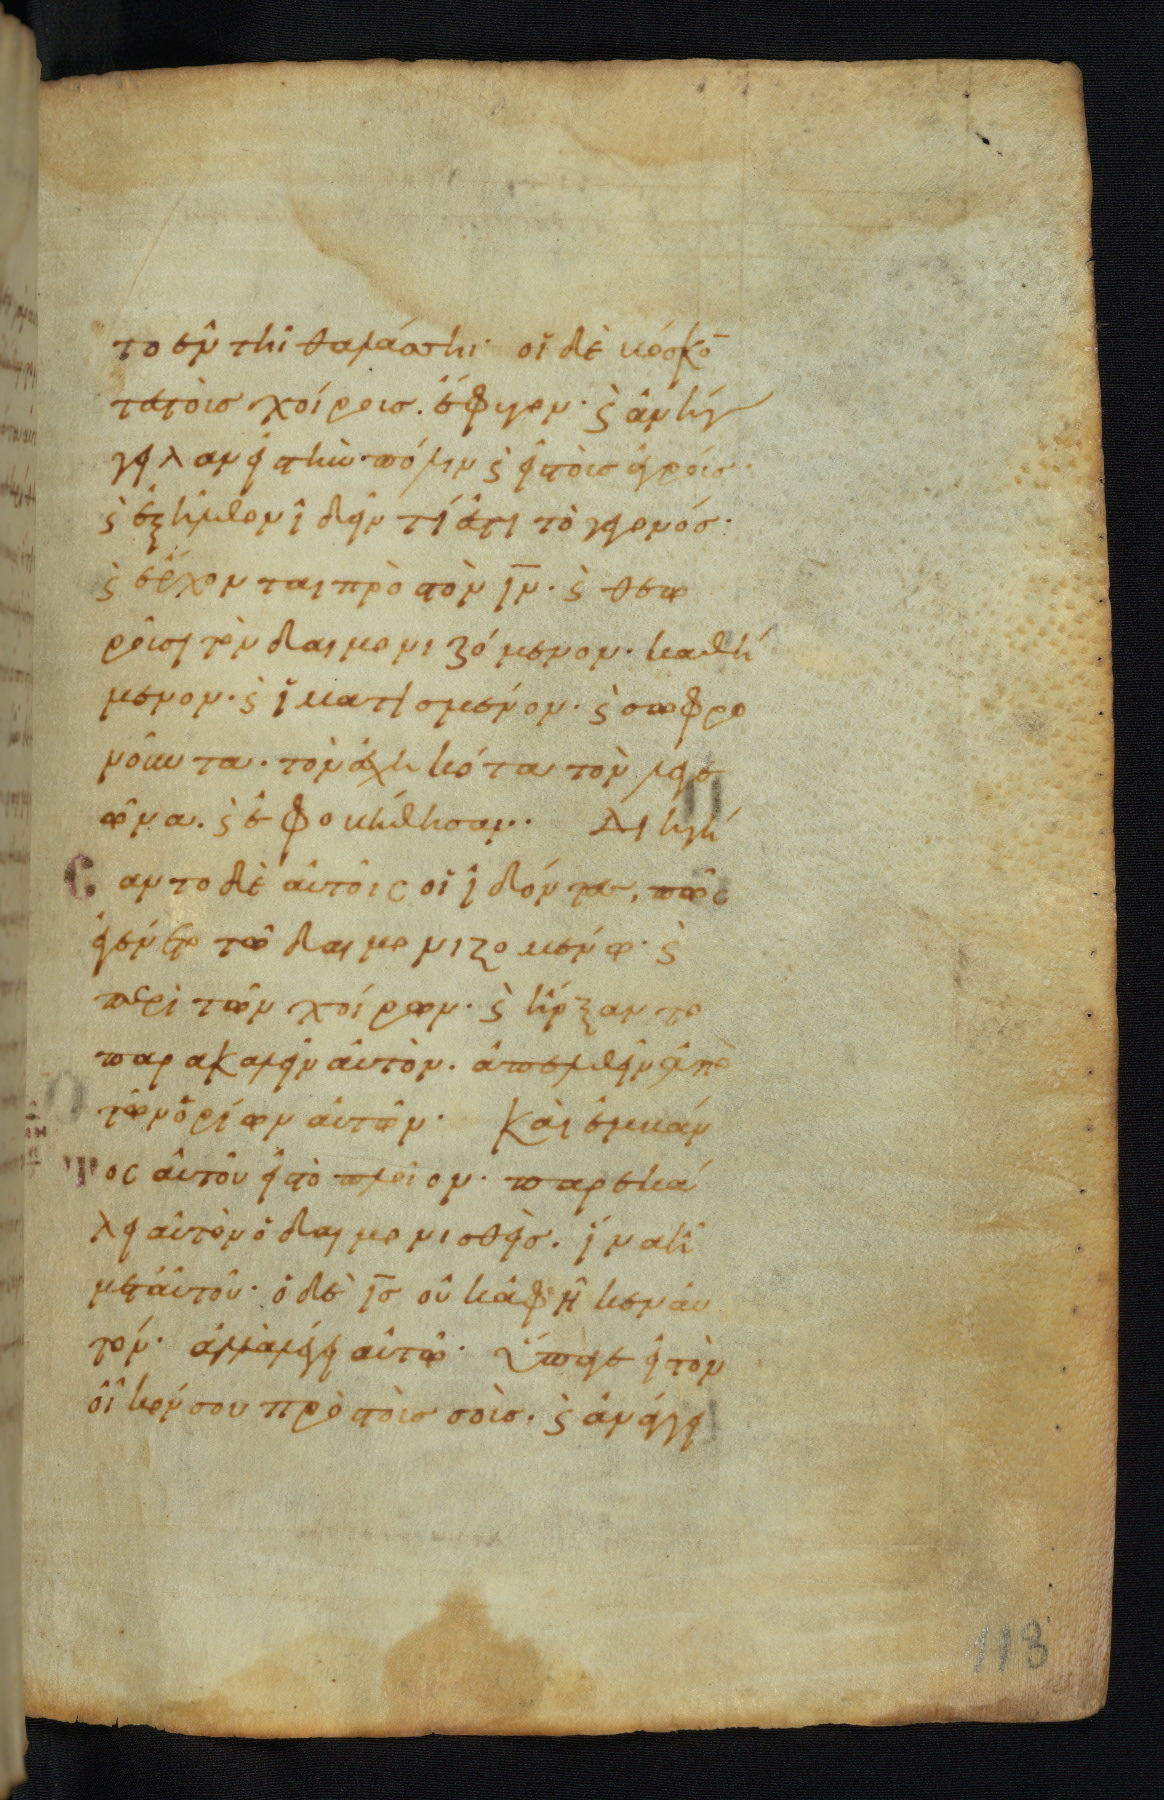 το ἐν τῆι θαλάσσηι· οἱ δὲ βόσκο̅
τες τοὺς χοίρους. ἔφυγον· ϛ ἀνήγ
γειλαν εἰς τὴν πόλιν ϛ εἰς τοὺς ἀγρούς·
ϛ ἐξῆλθον ἰδεῖν τί ἐστι τὸ γεγονός·
ϛ ἔρχονται πρὸς τὸν ι̅ν̅· ϛ θεω
ροῦσι τὸν δαιμονιζόμενον· καθή
μενον· ϛ ἱματισμένον· ϛ σωφρο
νοῦντα· τὸν ἐσχηκότα τὸν λεγε
ῶνα. ϛ ἐφοβήθησαν· Διηγή
σαντο δὲ αὐτοῖς οἱ ἰδόντες, πῶς
ἐγένετο τῶ δαιμονιζομένω· ϛ
περὶ τῶν χοίρων· ϛ ἤρξαντο
παρακαλεῖν αὐτὸν. ἀπελθεῖν ἀπὸ
τῶν ὁρίων αὐτῶν· Καὶ ἐμβάν
τος αὐτοῦ εἰς τὸ πλοῖον· παρεκά
λει αὐτὸν ὁ δαιμονισθεὶς. ἵνα ἦ
μετ αὐτοῦ· ὁ δὲ ι̅ς̅ οὐκ ἀφῆκεν αὐ
τόν· ἀλλὰ λέγει αὐτῶ· Ὕπαγε εἰς τὸν
οἶκόν σου πρὸς τοὺς σοὺς. ϛ ἀνάγγει
113